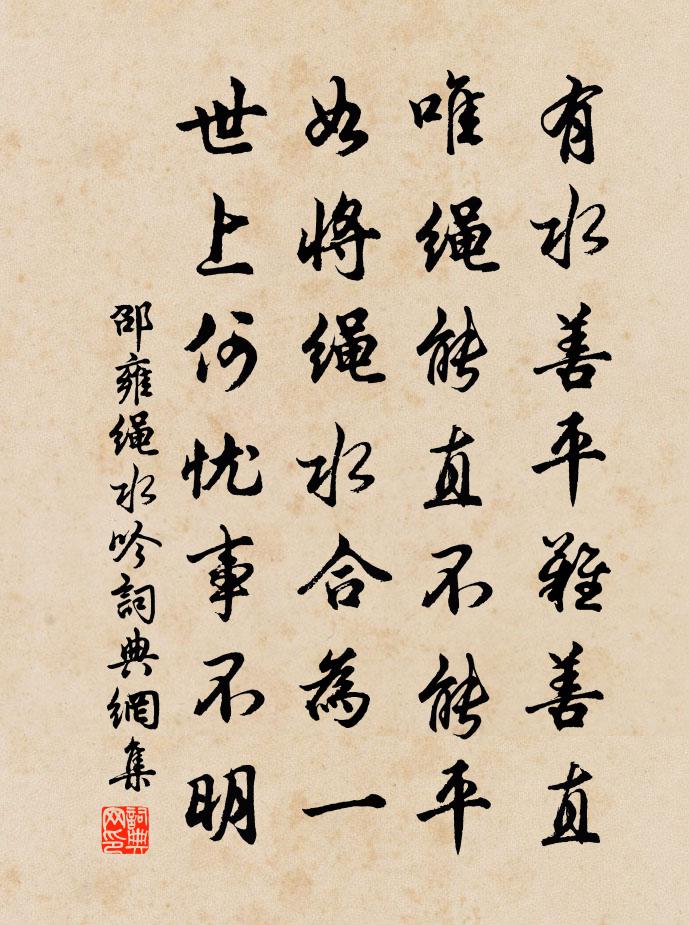 有水善平難善直
唯繩能直不能平
如將繩水合為一
世上何忧事不明
邵雍繩水吟詞典網集
詞典網印